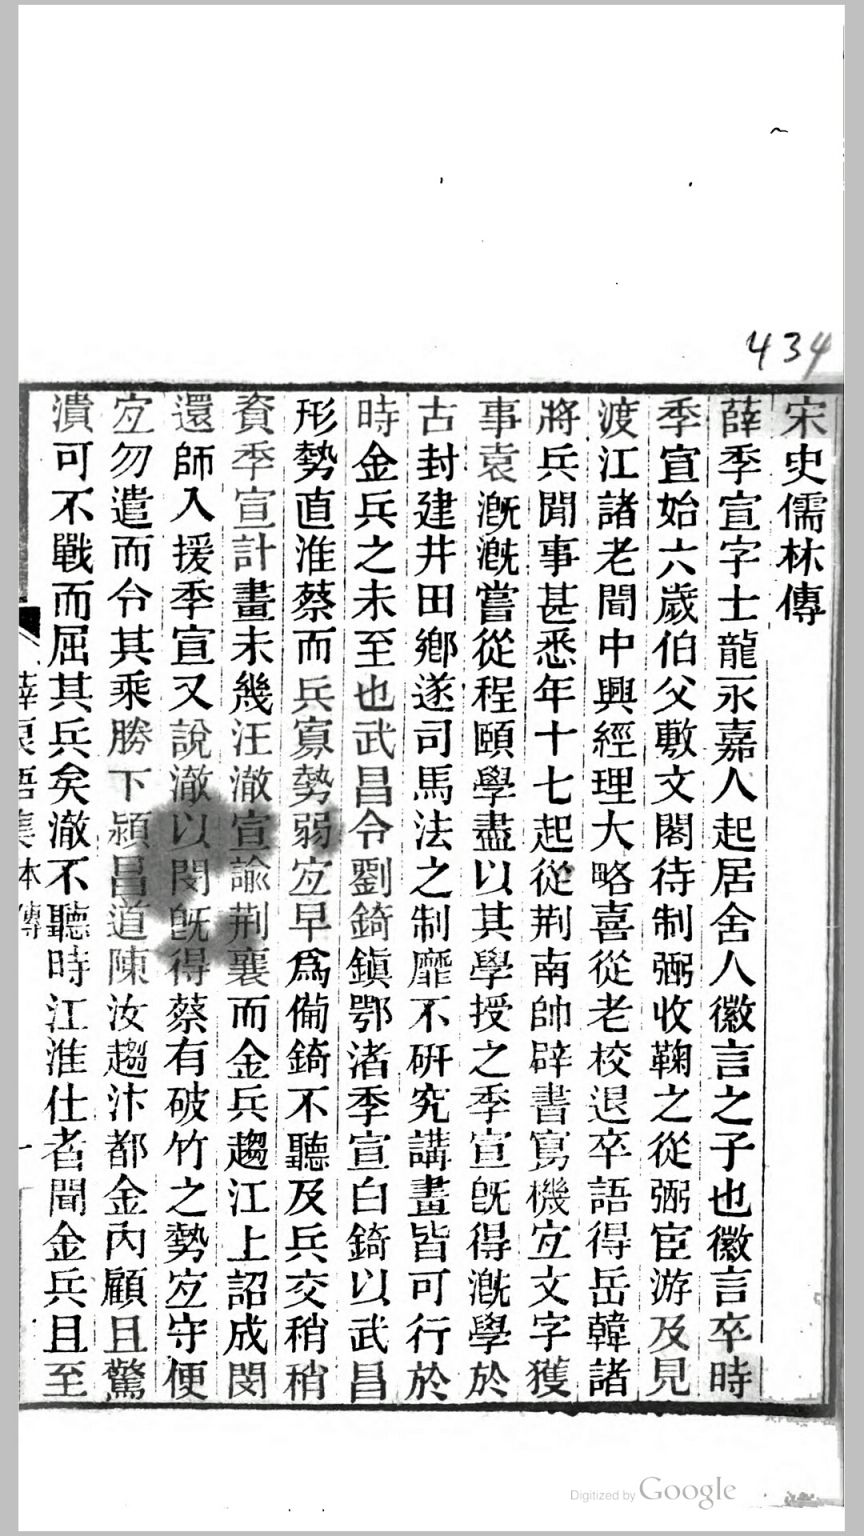 434
宋史儒林傳
薛季宣字士龍永嘉人起居舍人徽言之子也徽言卒時
季宣始六歲伯父敷文閣待制弼收鞠之從弼宦游及見
渡江諸老聞中興經理大略喜從老校退卒語得岳韓諸
將兵聞事甚悉年十七起從荆南帥辟書寫機宐文字獲
事袁溉溉嘗從程頤學盡以其學授之季宣旣得溉學於
古封建井田鄉遂司馬法之制靡不硏究講畫皆可行於
時金兵之未至也武昌令劉錡鎭鄂渚季宣白錡以武昌
形勢直淮蔡而兵寡勢弱宐早爲僃錡不聽及兵交稍稍
資季宣計畫未幾汪澈宣諭荆襄而金兵趨江上詔成閔
還師入援季宣又說澈以閔旣得蔡有破竹之勢宐守便
宐勿遣而令其乘勝下潁昌道陳汝趨汴都金內顧且驚
潰可不戰而屈其兵矣澈不聽時江淮仕者聞金兵且至
薛艮語集本傳
一
Digitized by Google